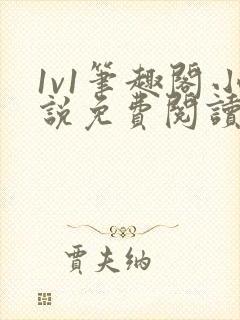 1v1筆趣閣.小
說免費閱讀
賈夫納